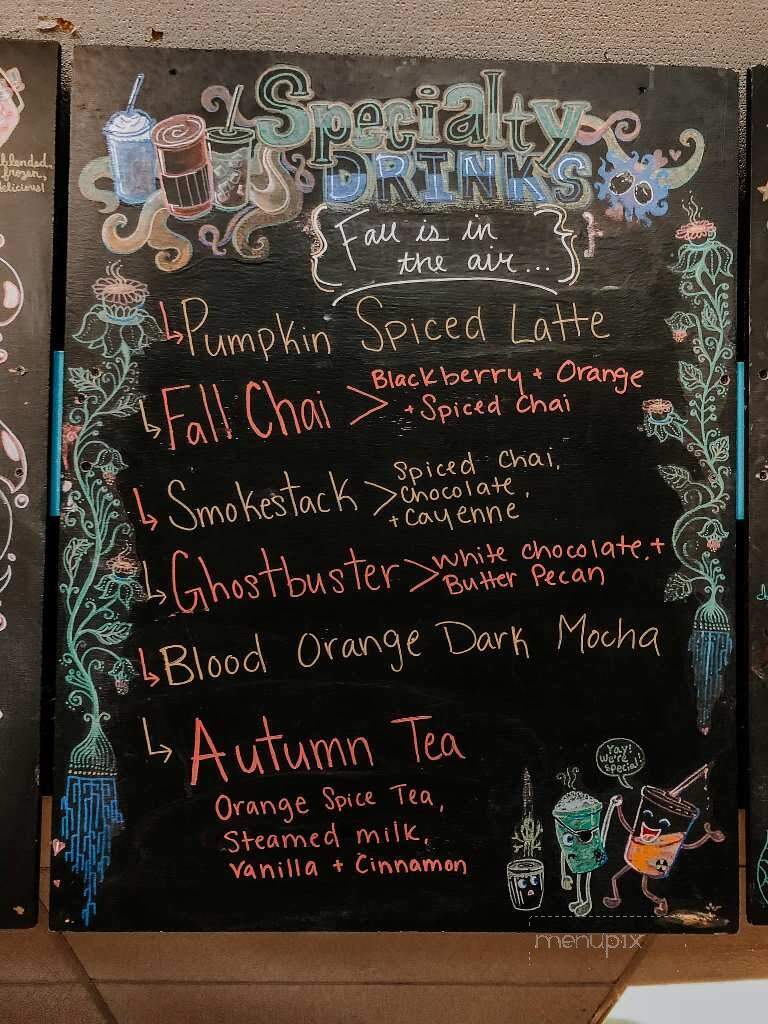 blended,
frozen,
delicious!
Specialty
& DRINKS
{Fall is in
the air...}
Pumpkin Spiced Latte
Fall Chai > Blackberry + Orange
+ Spiced Chai
Smokestack > Spiced Chai,
Chocolate,
+ Cayenne
Ghostbuster > White Chocolate. +
Butter Pecan
Blood Orange Dark Mocha
Autumn Tea
Orange Spice Tea,
Steamed milk,
Vanilla + Cinnamon
Yay!
We're
special!
menupix